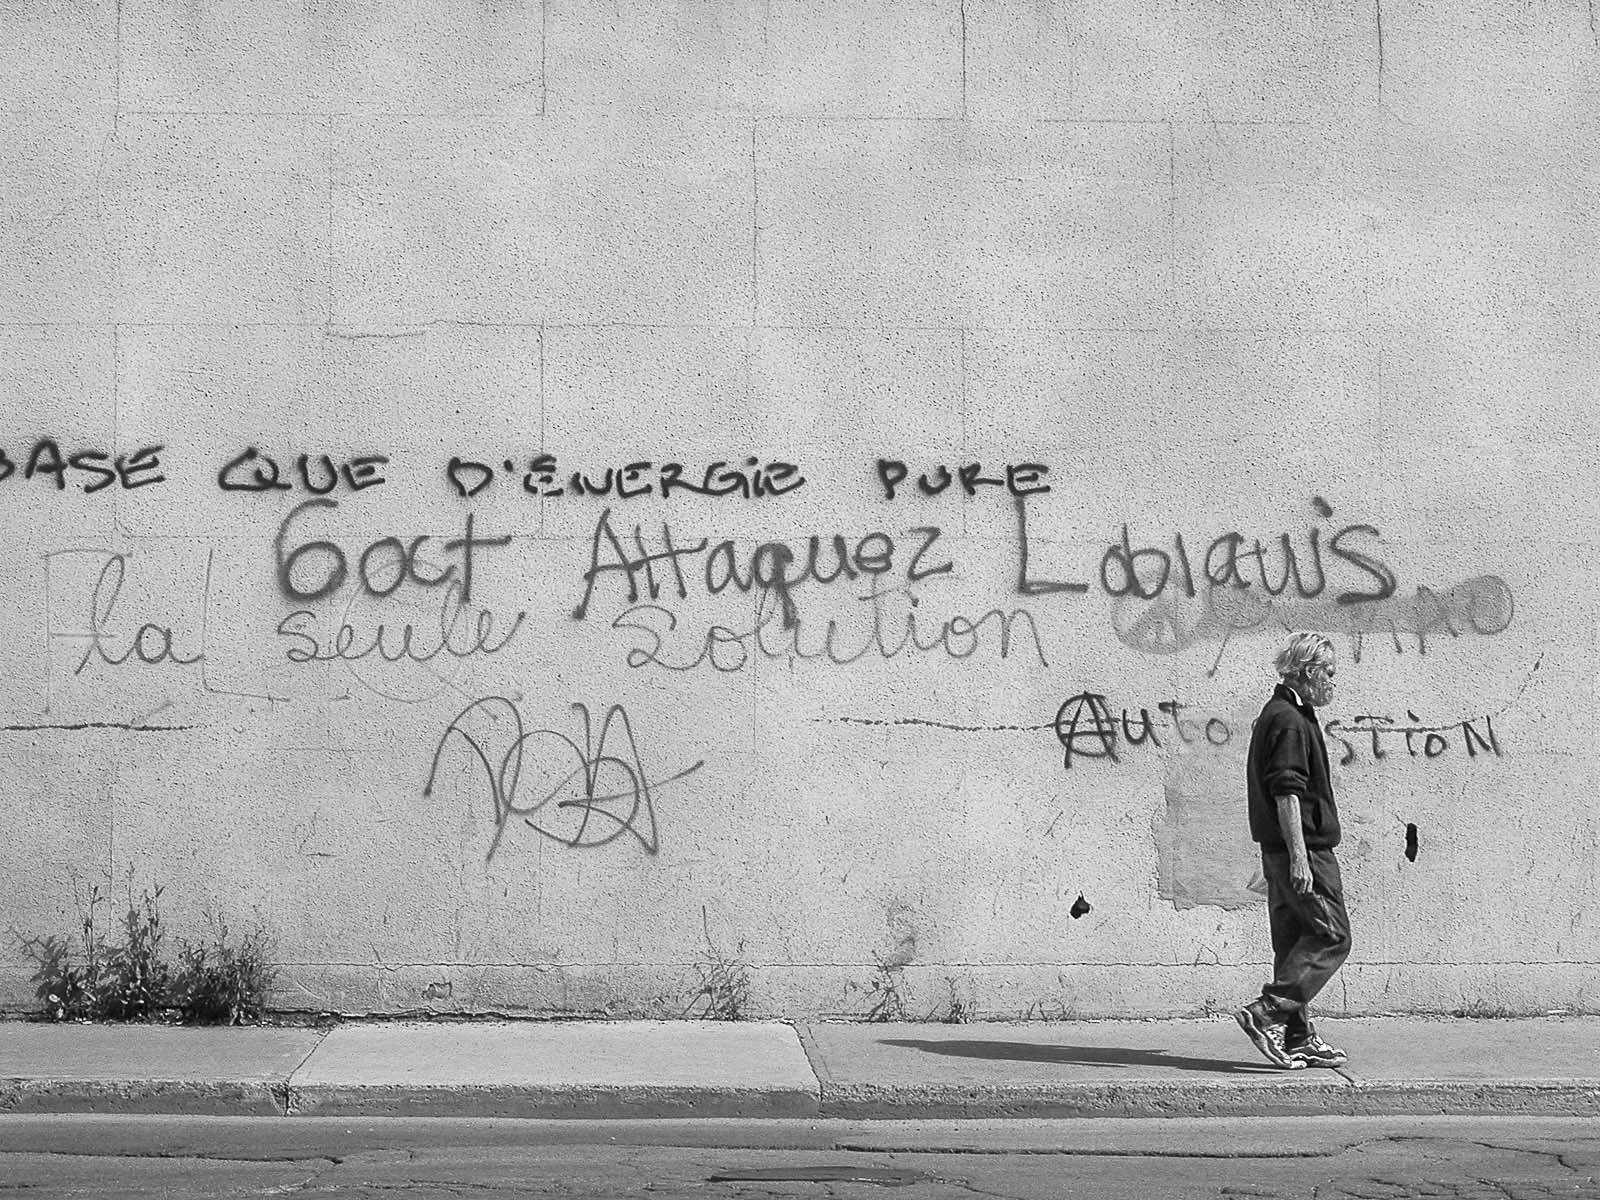 BASE QUE D'ÉNERGIE PURE
6 oct Attaquez Loblaws
la seule solution
Auto stion